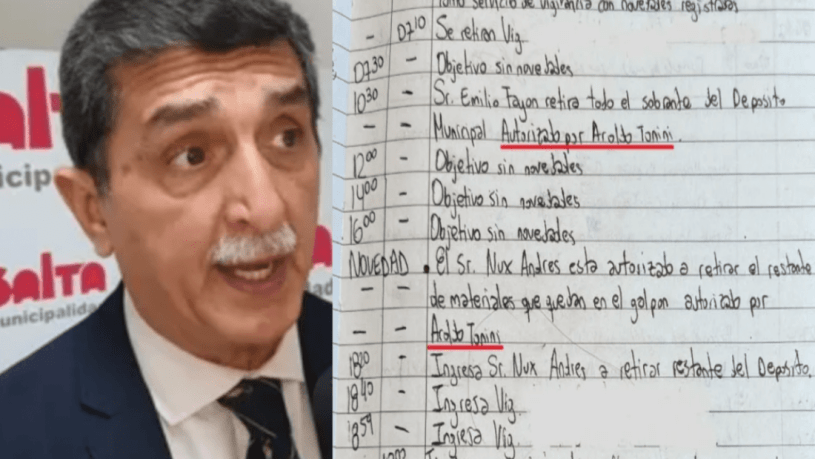 SALTA
unicipalidad
SALTA
Municipalidad
Tomo servicio de vigilancia con novedades registradas
- 0710 Se retiran Vig.
0730 - Objetivo sin novedades
1030 - Sr. Emilio Fayon retira todo el sobrante del Deposito
- - Municipal Autorizabo por Aroldo Tonini.
1200 - Objetivo sin novedades
1400 - Objetivo sin novedades
1600 - Objetivo sin novedades
NOVEDAD . El Sr. Nux Andres esta autorizabo a retirar el restante
- - de materiales que quedan en el golpon autorizabo por
- - Aroldo Tonini
1820 - Ingresa Sr. Nux Andres a retirar restante del Deposito.
1840 - Ingresa Vig.
1859 - Ingresa Vig.